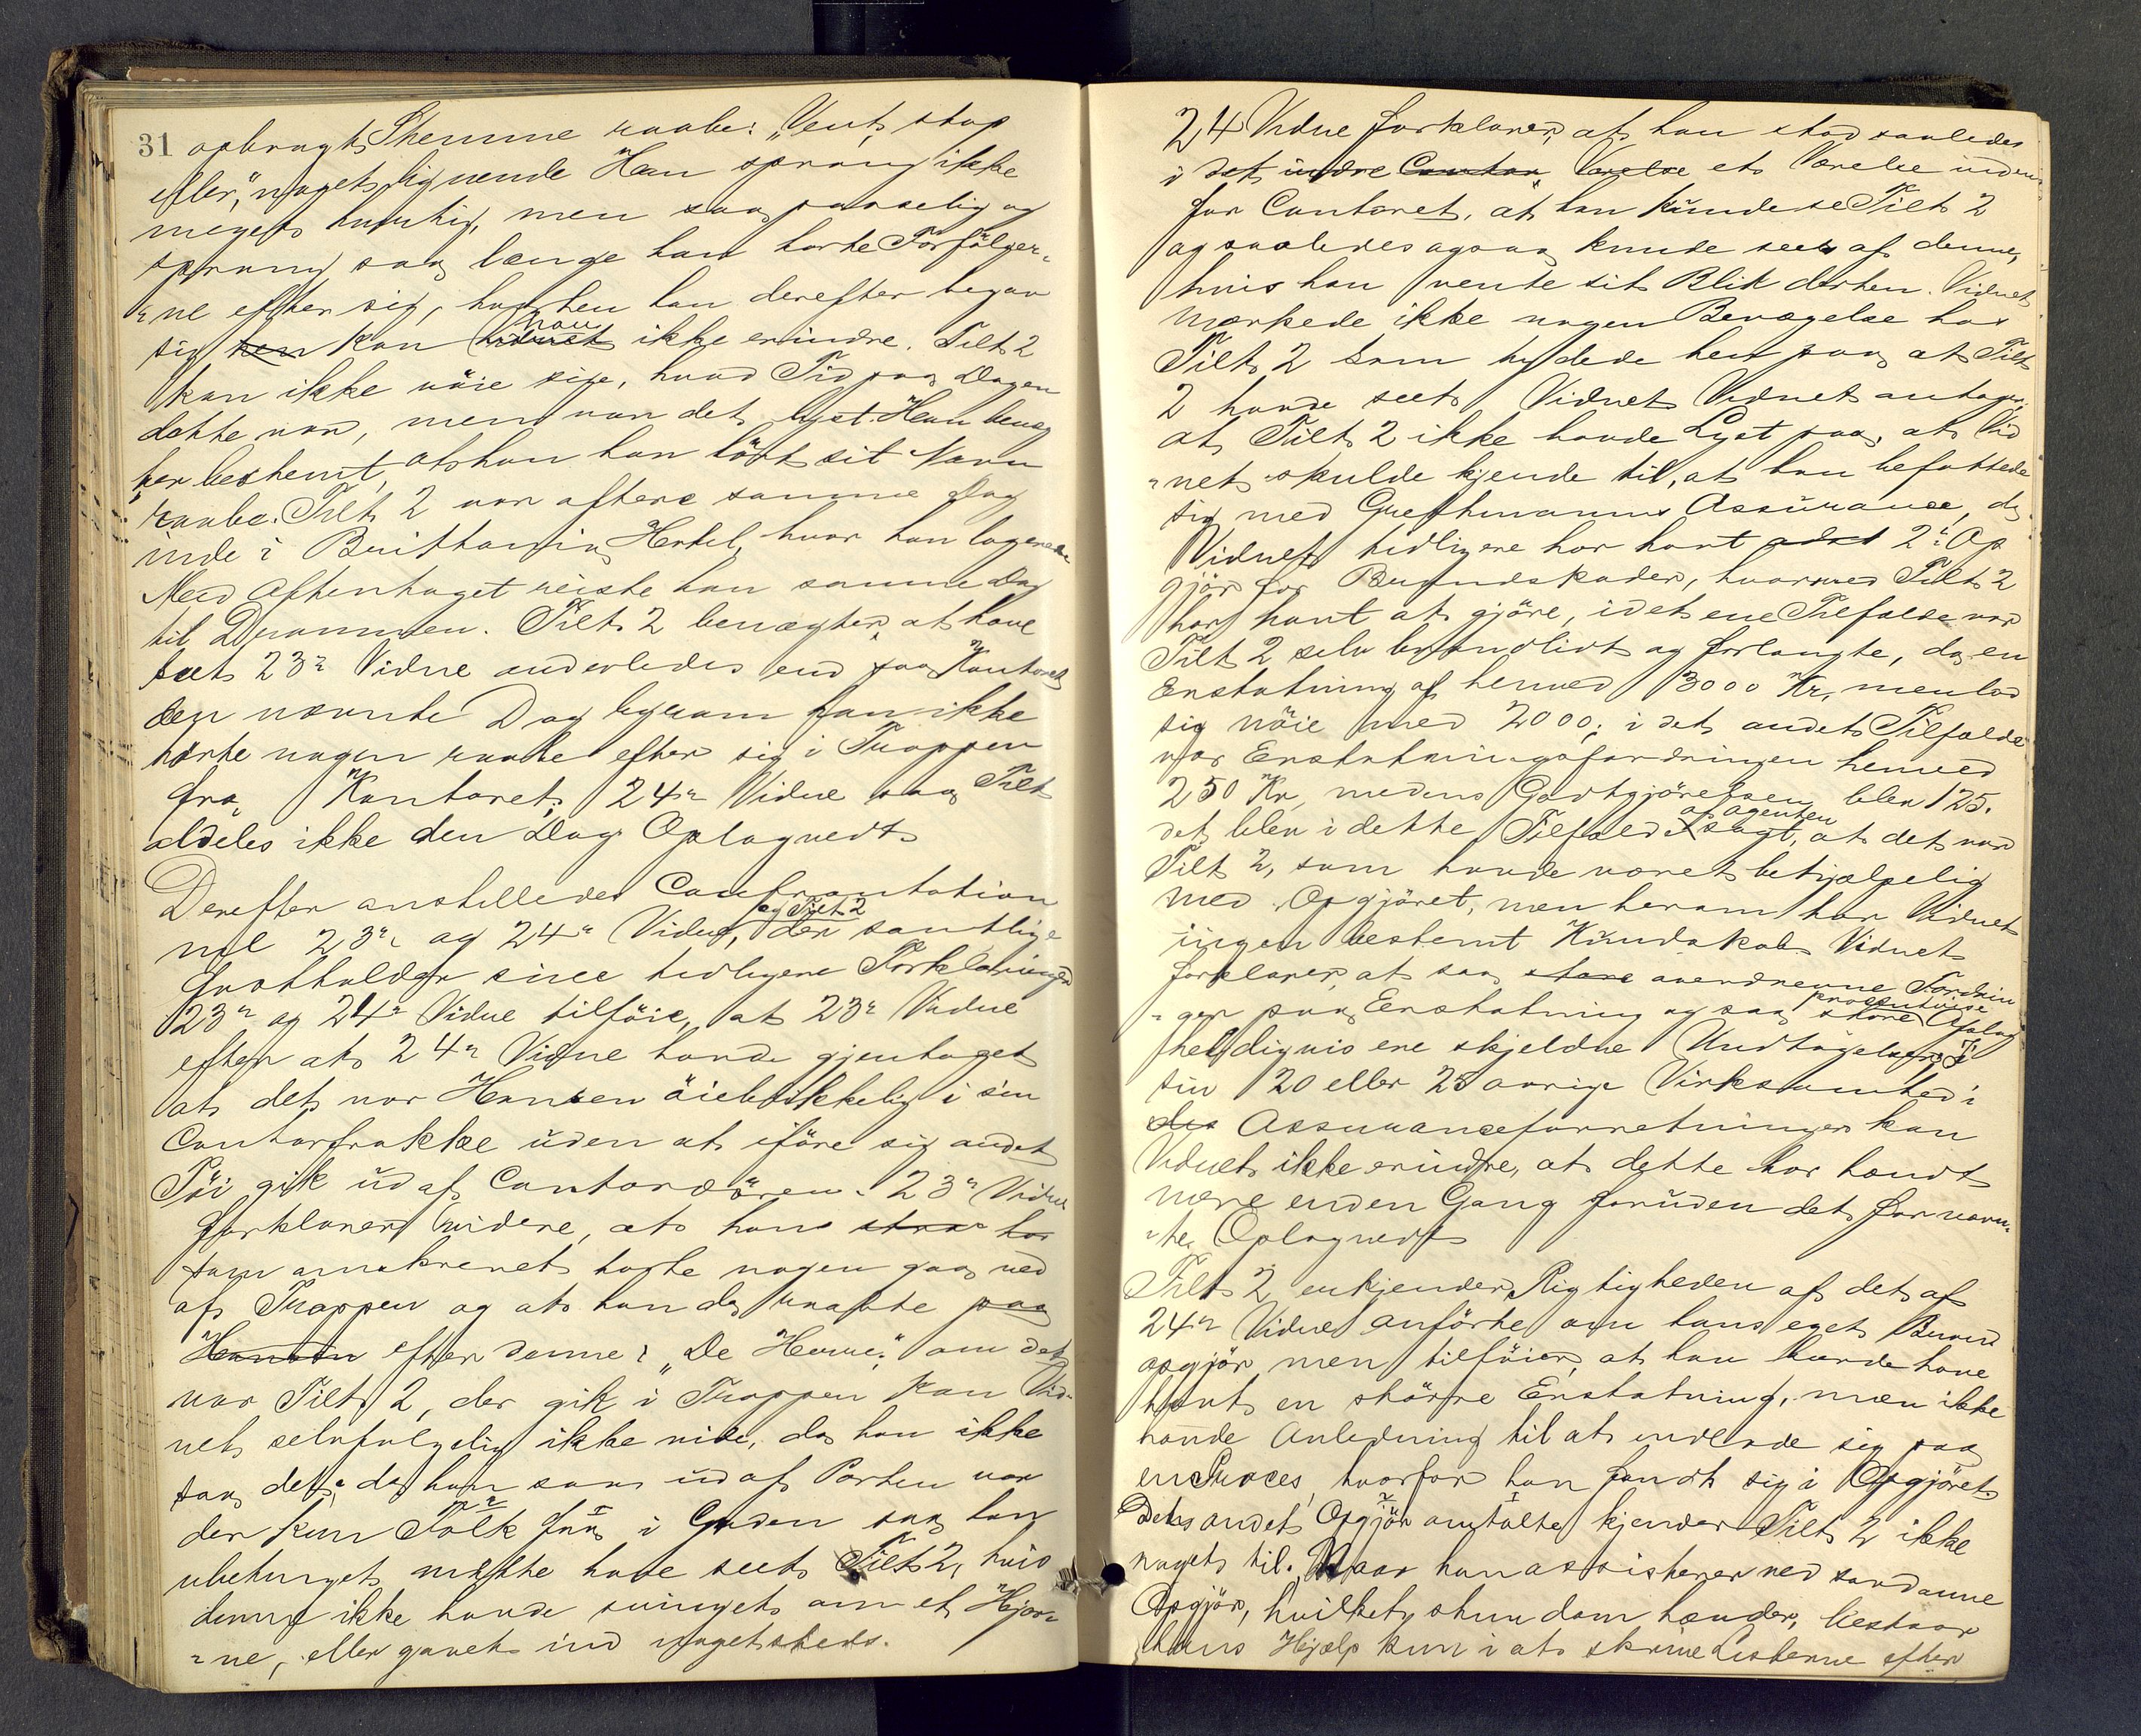 31 opbragt Stemme raabe: "Vent, stop
eller" noget lignende Han sprang ikke
meget hurtig, men saa passelig og
sprang saa længe han hørte Forfølger-
"ne efter sig, hvorhen han derefter begav
sig hen kan Vidnet han ikke erindre. Tilt 2
kan ikke nöie sige, hvad Tid paa Dagen
dette var, men var det lyst. Han benæg
ter bestemt, at han har hört sit Navn
raabe. Tilt 2 var oftere samme Dag
inde i Brittania Hotel, hvor han logerede
Med Aftentoget reiste han samme Dag
til Drammen. Tilt 2 benægter, at have
seet 23de Vidne anderledes end paa Kontoret
den nævnte Dag ligesom han ikke
hørte nogen raabe efter sig i Trappen
fra Kontoret; 24de Vidne saa Tilt
aldeles ikke den Dag Oplagnedt
Derefter anstilledes Confrontation
mel 23de og 24de Vidne, og Tilt 2 der samtlige
fastholder sine tidligere Forklaringer
23de og 24de Vidne tilföie, at 23de Vidne
efter at 24de Vidne havde gjentaget
at det var Hansen öieblikkelig i sin
Contorfrakke uden at iføre sig andet
Töi gik ud af Contordören. 23de Vidne
forklarer videre, at han strax har
som anskrenet hørte nogen gaa ned
af Trappen og at han da raabte paa
Hansen efter denne: "De Herre"; om det
var Tilt 2, der gik i Trappen kan Vid-
net selvfølgelig ikke vide, da han ikke
saa det; da han saa ud af Porten var
der kun Folk faa i Gaden saa han
ubetinget maatte have seet Tilt 2, hvis
denne ikke havde svinget om et Hjør-
"ne, eller gaaet ind noget steds.
24 Vidne forklarer, at han stod saaledes
i det indre Contor Værelse et Værelse inden
for Contoret, at han kunde se Tilt 2
og saaledes ogsaa kunde sees af denne,
hvis han vente sit Blik derhen. Vidnet
mærkede ikke nogen Bevægelse hos
Tilt 2 som tydede hen paa at Tilt
2 havde seet Vidnet Vidnet antager,
at Tilt 2 ikke havde Lyst paa, at Vid
"net skulde kjende til, at han befattede
sig med Assurance, da
Vidnet tidligere har havt adst 2de Op
gjör for Brandskader, hvormed Tilt 2
har havt at gjöre, i det ene Tilfælde var
Tilt 2 selv brandlidt og forlangte, da en
Erstatning af henved 3000 Kr, men lod
sig nöie med 2000; i det andet Tilfælde
var Erstatningsfordringen henved
250 Kr, medens Godtgjörelsen blev 125.
det blev i dette Tilfælde af agenten sagt, at det var
Tilt 2, som havde været behjælpelig
med Opgjöret, men herom har Vidnet
ingen bestemt Kundskab. Vidnet
forklarer, at saa store overdrevne Fordrin
"ger paa Erstatning og saa store procentvise Afslag
heldigvis ere skjeldne Undtagelser; I
sin 20 eller 25 aarige Virksomhed i
des Assuranceforretninger kan
Vidnet ikke erindre, at dette har hændt
mere enden Gang foruden det fornævn-
"te, Oplagnedt
Tilt 2 erkjender Rigtigheden af det af
24de Vidne anförte om hans eget Brand
opgjör, men tilföier, at han burde have
havt en större Erstatning, men ikke
havde Anledning til at indlade sig paa
en Proces, hvorfor han fandt sig i Opgjöret
Det andet Opgjör omtalte kjender Tilt 2 ikke
noget til. Naar han assisterer ved saadanne
Opgjör, hvilket stundom hænder, bestaar
hans Hjælp kun i at skrive Listerne efter